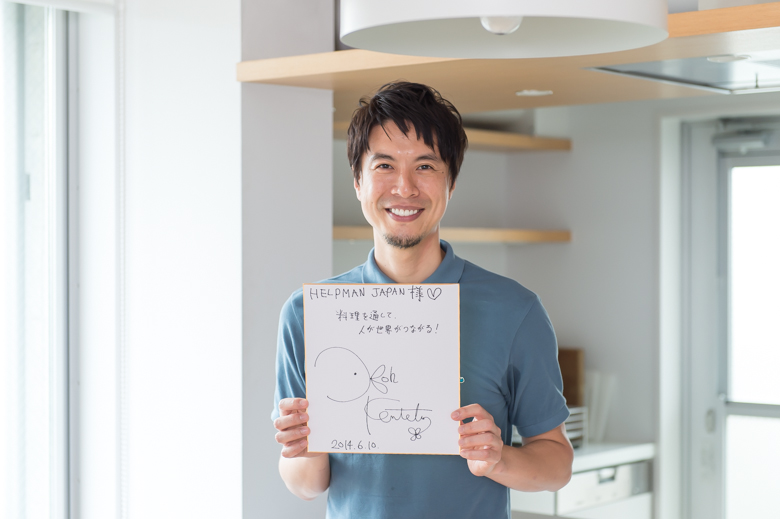 HELPMAN JAPAN 様♡
料理を通して、
人が世界がつながる!
Koh
Kentetsu
2014.6.10.